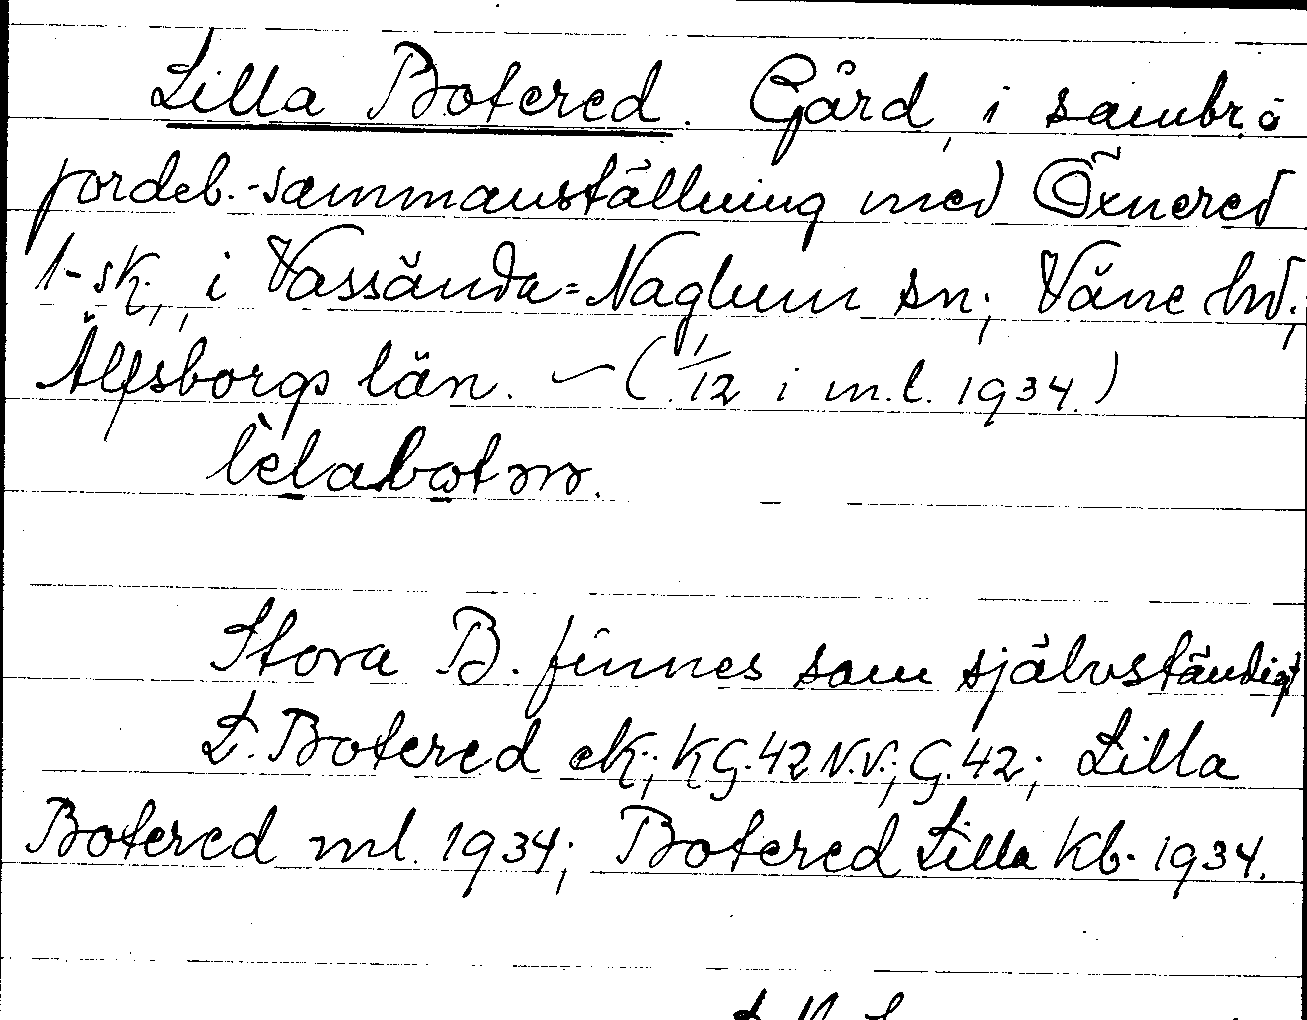 Lilla Botered. Gård, i sambr. å
jordeb.-sammanställning med Öxnered
1-sk., i Vassända-Naglum sn; Väne hd.,
Älfsborgs län. – (1/12 i m.l. 1934.)
Stora B. finnes som självständigt
L. Botered ek; KG.42 N.V.; G.42; Lilla
Botered ml. 1934; Botered Lilla Kb. 1934.